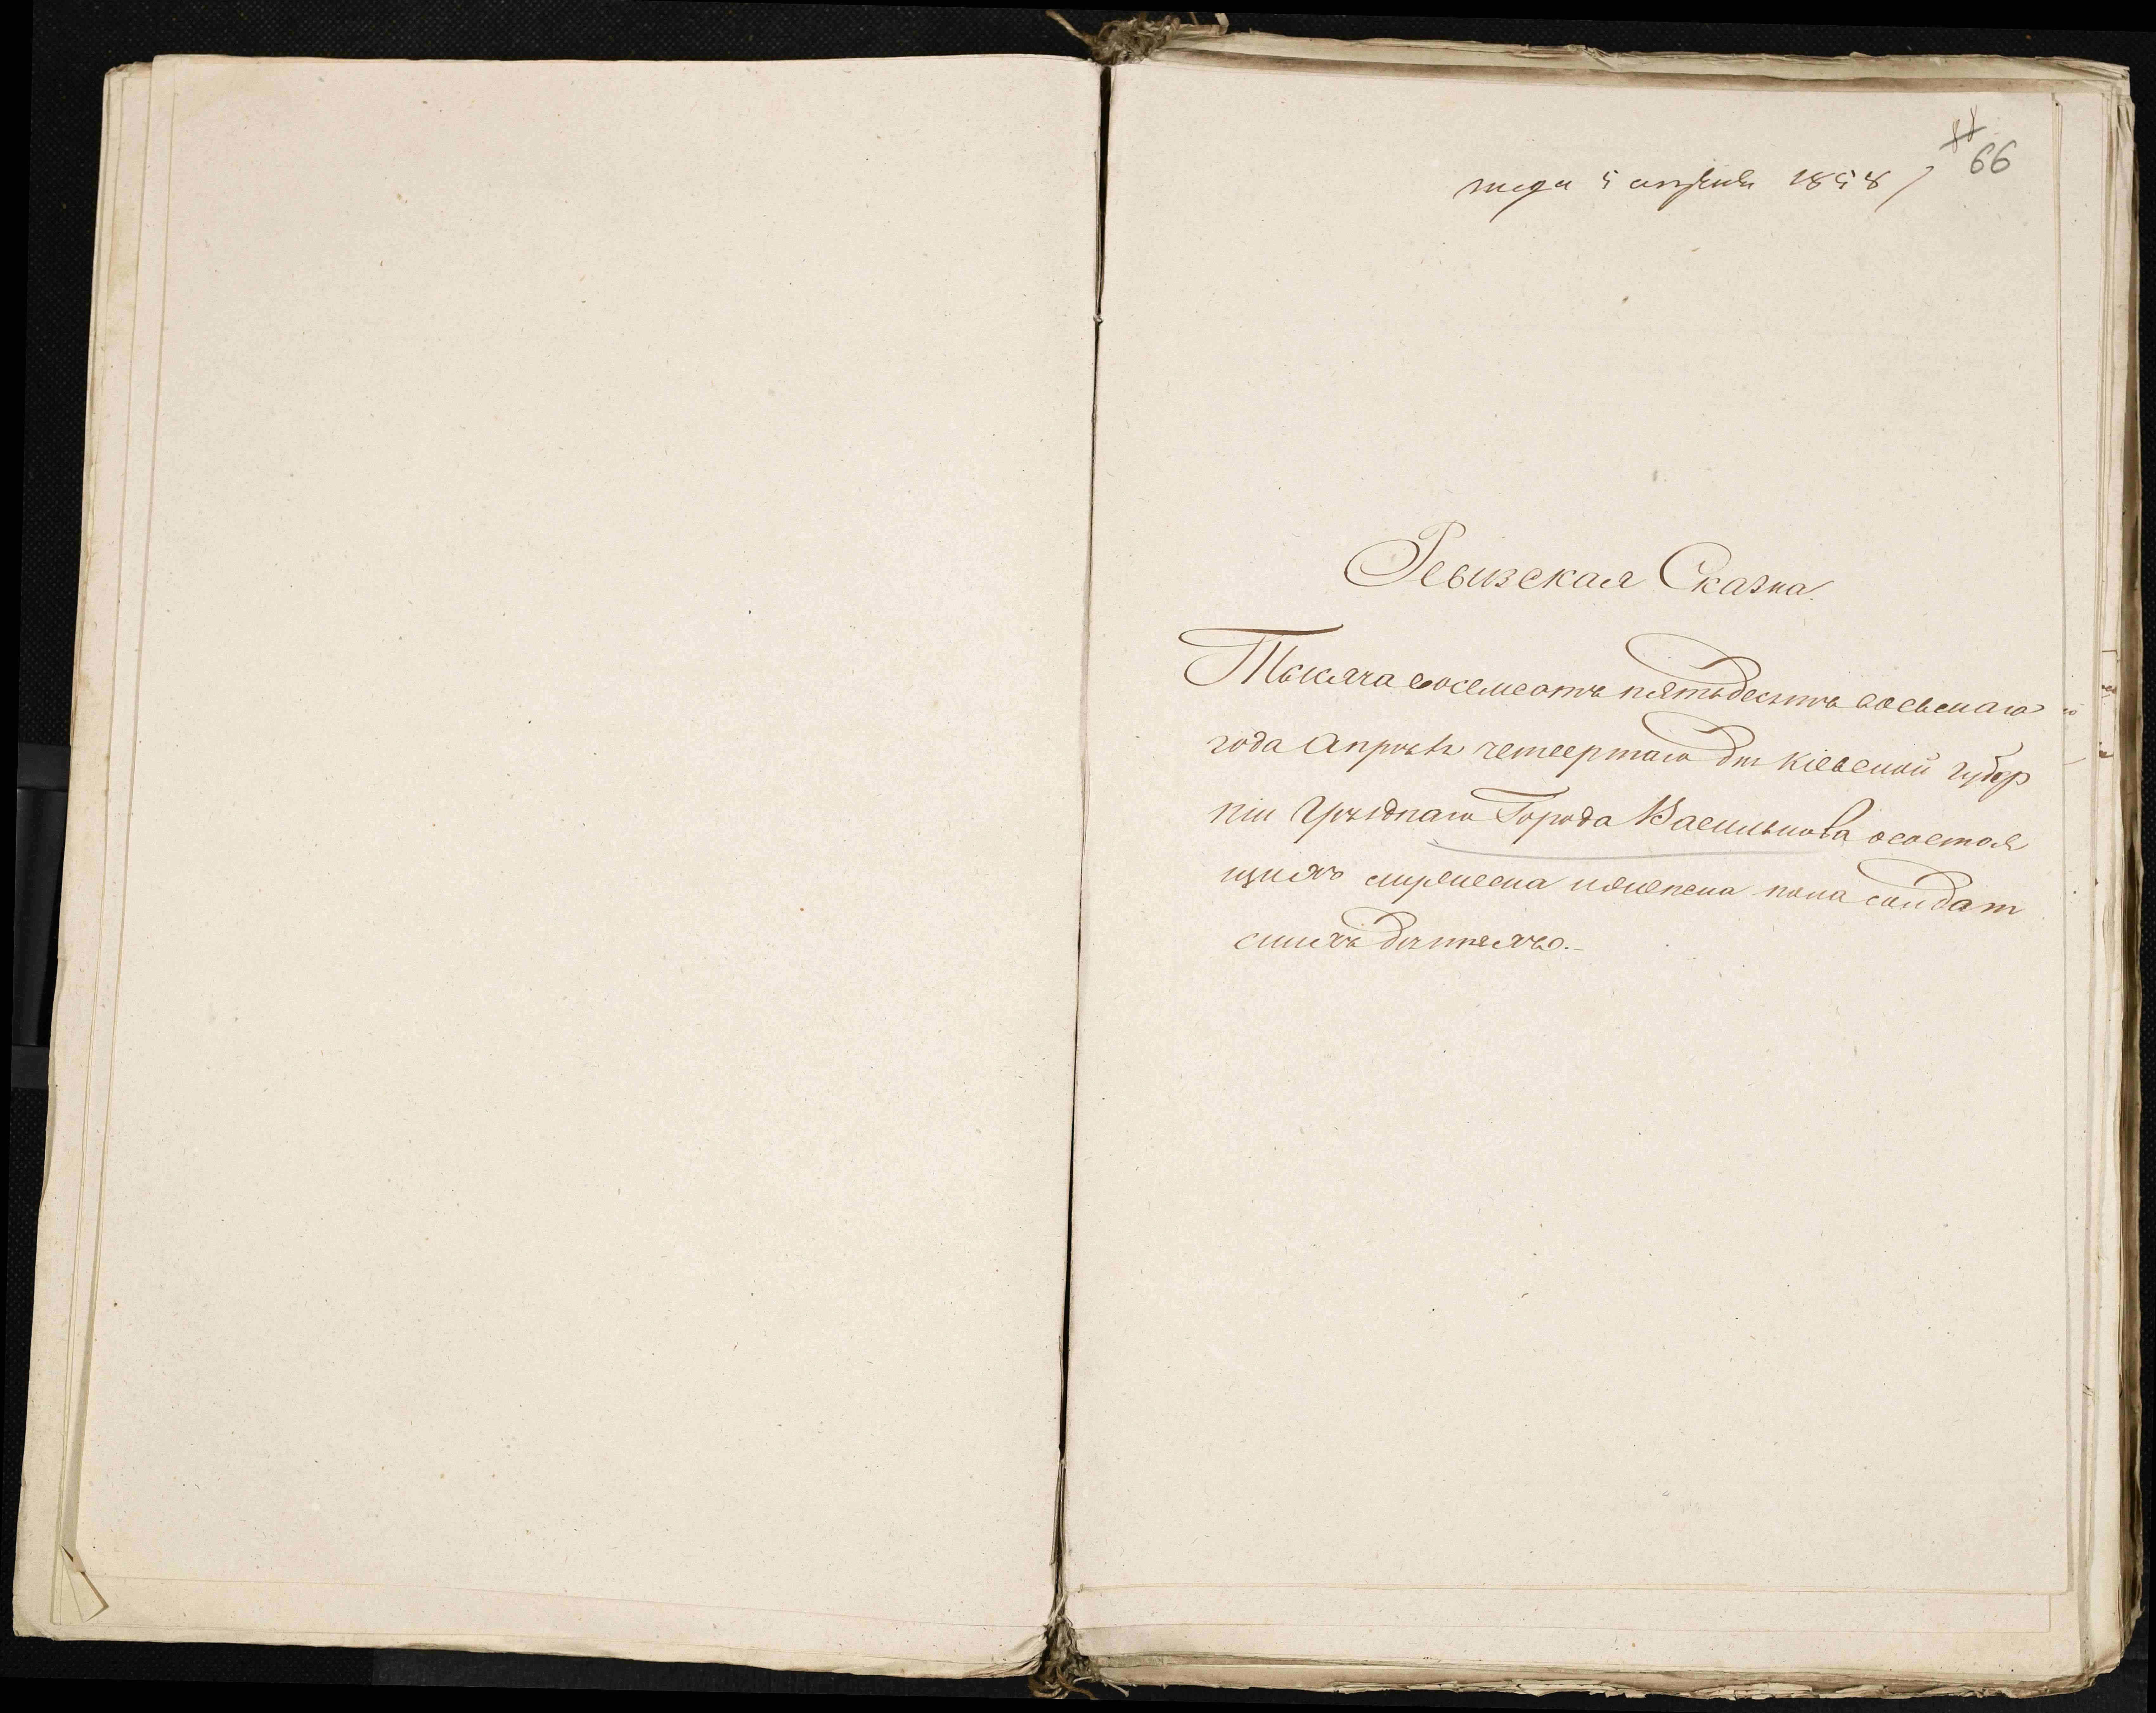 66
5 апреля 1858
Ревизская Сказка.
Тысяча восемсотъ пятьдесятъ восьмаго
года Апреля четвертаго дня Кіевской губер
ніи Уезднаго Города Василькова о состоя
щихъ мужеска и женска пола солдат
скихъ детяхъ.-